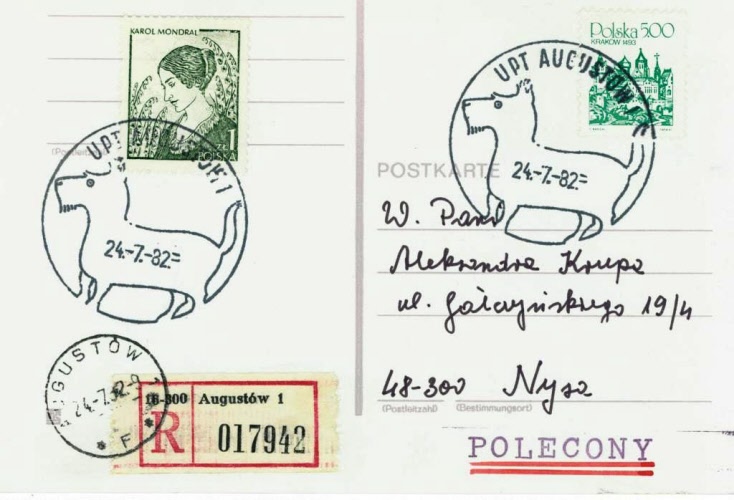 KAROL MONDRAL
1
ZŁ
POLSKA
UPT AUGUSTÓW 1
24.-7.-82=
(Postleitz
AUGUSTÓW 1
24.-7.82-9
* F *
16-300 Augustów 1
R 017942
Polska 5.00
KRAKÓW 1493
UPT AUGUSTÓW 1
24.-7.-82=
POSTKARTE
W. Pani
Aleksandra Krupa
ul. Gałczyńskiego 19/4
48-300 Nysa
(Postleitzahl) (Bestimmungsort)
POLECONY